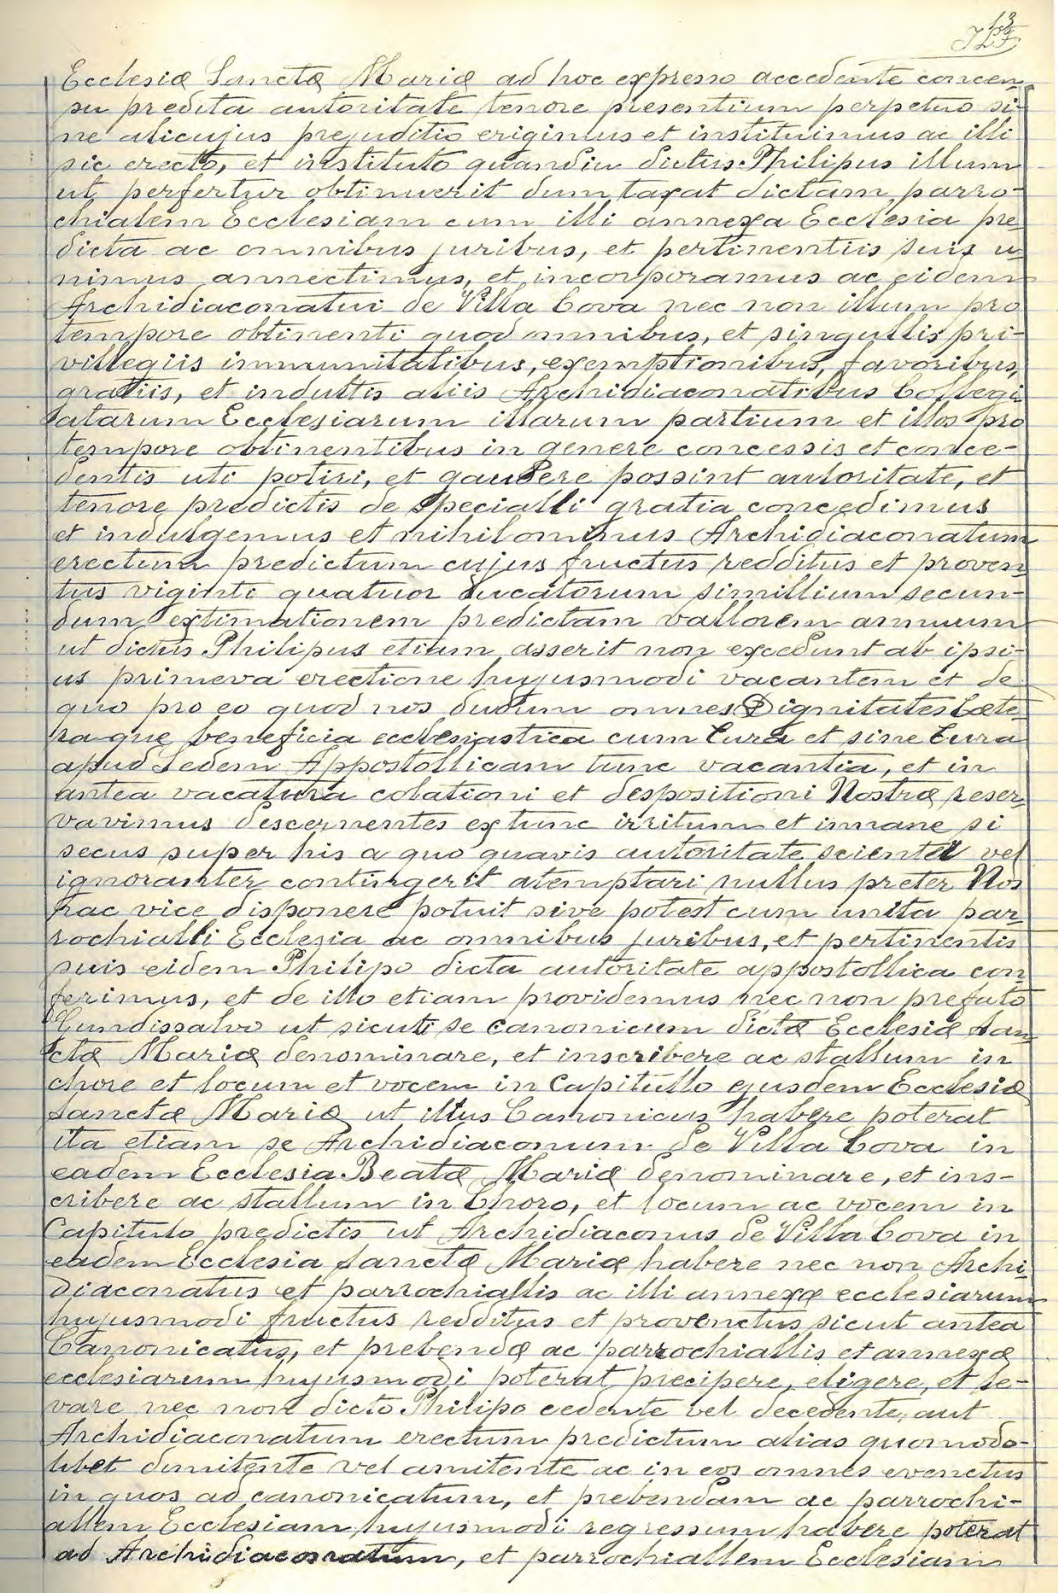 13
Ecclesiæ Sanctæ Mariæ ad hoc expresso accedente concen-
su predita autoritate tenore presentium perpetuo si-
ne alicujus prejuditio erigimus et instituimus ac illi
sic erecto, et instituto quandiu dictus Philipus illum
ut perfertur obtinuerit dum taxat dictam parro-
chialem Ecclesiam cum illi annexa Ecclesia pre
dicta ac omnibus juribus, et pertinentiis suis u
nimus annectimus, et incorporamus ac eidem
Archidiaconatui de Villa Cova nec non illum pro
tempore obtinenti quod omnibus, et singullis pri-
villegiis immunitatibus, exemptionibus, favoribus,
gratiis, et indultis aliis Archidiaconatibus Collegi
atarum Ecclesiarum illarum partium et illos pro
tempore obtinentibus in genere concessis et conce-
dentis uti potiri, et gaudere possint autoritate, et
tenore predictis de specialli gratia concedimus
et indulgemus et nihilominus Archidiaconatum
erectum predictum cujus fructus redditus et proven
tus viginti quatuor ducatorum simillium secun-
dum extimationem predictam vallorem annuum
ut dictus Philipus etiam asserit non excedunt ab ipsi-
us primeva erectione hujusmodi vacantem et de
quo pro eo quod nos dudum omnes Dignitates Cæte
raque beneficia ecclesiastica cum Cura et sine Cura
apud Sedem Appostollicam tunc vacantia, et in
antea vacatura colationi et despositioni Nostræ reser
vavimus descernentes ex tunc irritum et innane si
secus super his a quo quavis autoritate scienter vel
ignoranter contingerit atemptari nullus preter Nos
hac vice disponere potuit sive potest cum unita par
rochialli Ecclesia ac omnibus juribus, et pertinentis
suis eidem Philipo dicta autoritate appostollica con
ferimus, et de illo etiam providemus nec non prefato
Gundissalvo ut sicuti se canonicum dictæ Ecclesiæ San
ctæ Mariæ denominare, et inscribere ac stallum in
chore et locum et vocem in Capitullo ejusdem Ecclesiæ
Sanctæ Mariæ ut illius Canonicus habere poterat
ita etiam se Archidiaconum de Villa Cova in
eadem Ecclesia Beatæ Mariæ denominare, et ins-
cribere ac stallum in Choro, et locum ac vocem in
Capitulo predictis ut Archidiaconus de Villa Cova in
eadem Ecclesia Sanctæ Mariæ habere nec non Archi
diaconatus et parrochiallis ac illi annexæ ecclesiarum
hujusmodi fructus redditus et provenctus sicut antea
Canonicatus, et prebendæ ac parrochiallis et annexæ
ecclesiarum hujusmodi poterat precipere, eligere, et le-
vare nec non dicto Philipo cedente vel decedente, aut
Archidiaconatum erectum predictum alias quomodo-
libet dimitente vel amitente ac in eos omnes evenctus
in quos ad canonicatum, et prebendam ac parrochi-
allem Ecclesiam hujusmodi regressum habere poterat
ad Archidiaconatum, et parrochiallem Ecclesiam